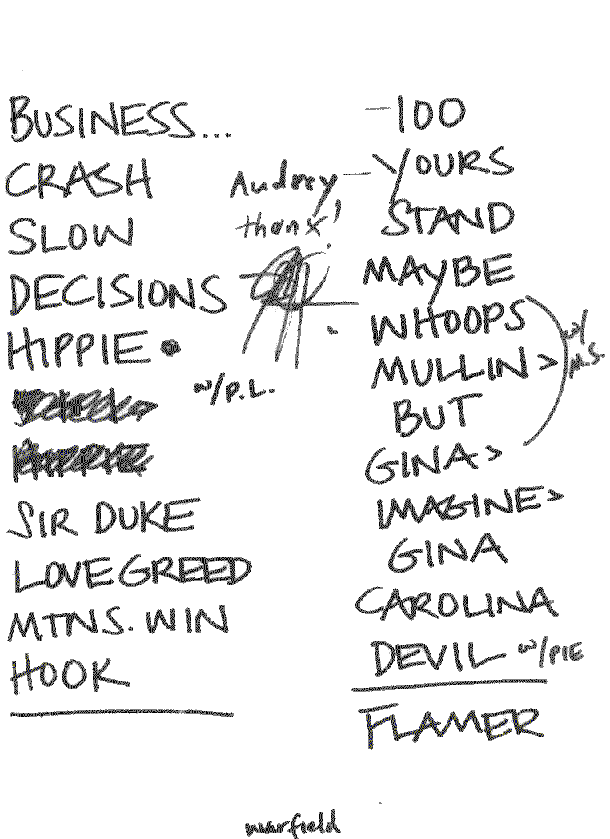 BUSINESS...
CRASH
SLOW
DECISIONS
HIPPIE •
w/P.L.
SIR DUKE
LOVE GREED
MTNS. WIN
HOOK
Audrey
thanx!
-100
YOURS
STAND
MAYBE
WHOOPS
MULLIN >
BUT
w/ M.S.
GINA >
IMAGINE >
GINA
CAROLINA
DEVIL w/PIE
FLAMER
warfield